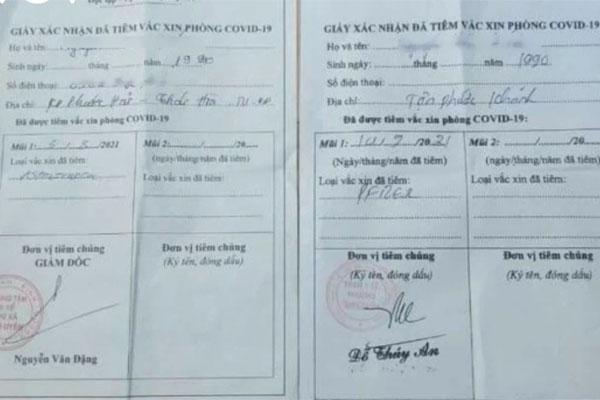 GIẤY XÁC NHẬN ĐÃ TIÊM VẮC XIN PHÒNG COVID-19
Họ và tên:
Sinh ngày: tháng năm 1990
Số điện thoại:
Địa chỉ: KP Phước Hải -
Đã được tiêm vắc xin phòng COVID-19
Mũi 1: 5/8/2021
(ngày/tháng/năm đã tiêm)
Loại vắc xin đã tiêm:
Mũi 2: / /20
(ngày/tháng/năm đã tiêm)
Loại vắc xin đã tiêm:
Đơn vị tiêm chủng
GIÁM ĐỐC
Nguyễn Văn Đặng
Đơn vị tiêm chủng
(Ký tên, đóng dấu)
GIẤY XÁC NHẬN ĐÃ TIÊM VẮC XIN PHÒNG COVID-19
Họ và tên:
Sinh ngày: tháng năm 1990
Số điện thoại:
Địa chỉ: Tân Phước Khánh
Đã được tiêm vắc xin phòng COVID-19:
Mũi 1: /2021
(Ngày/tháng/năm đã tiêm)
Loại vắc xin đã tiêm:
PFIZER
Mũi 2: / /20
(ngày/tháng/năm đã tiêm)
Loại vắc xin đã tiêm:
Đơn vị tiêm chủng
(Ký tên, đóng dấu)
Đỗ Thúy An
Đơn vị tiêm chủng
(Ký tên, đóng dấu)